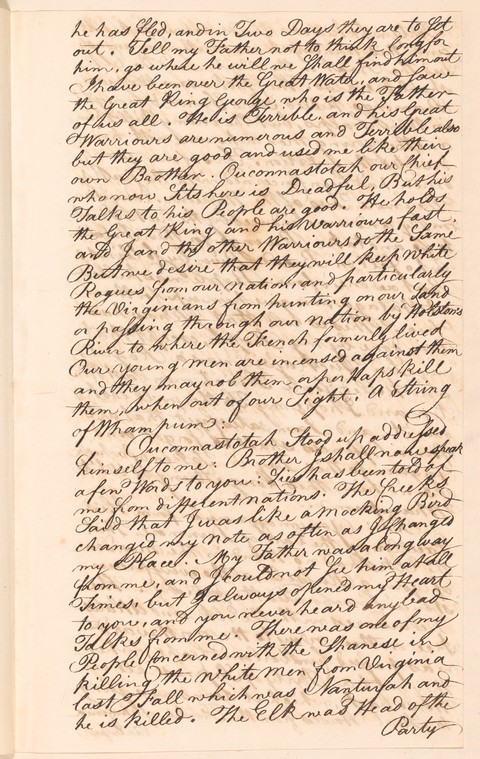 he has fled, and in Two Days they are to Set
out. Tell my Father not to think long for
him, go where he will we Shall find him out
I have been over the Great Water, and saw
the Great King George who is the Father
of us all. He is Terrible, and his Great
Warriours are numerous and Terrible also
but they are good and used me like their
own Brother. Ouconnastotah our Chief
who now Sits here is Dreadful, But his
Talks to his People are good. He holds
the Great King and his Warriours fast.
and I and the other Warriours do the Same
But we desire that they will keep White
Rogues from our nation, and particularly
the Virginians from hunting on our Land
or passing through our nation by Holstons
River to where the French formerly lived
Our young men are incensed against them
and they may rob them or perhaps kill
them, when out of our Sight. A String
of Whampum:
Ouconnastotah Stood up addressed
himself to me: Brother I shall now speak
a few Words to you: Lies has been told of
me from different nations. The Creeks
Said that I was like a mocking Bird
changed my note as often as I Changed
my Place. My Father was a long way
from me, and I could not See him at all
Times, but I always opened my Heart
to you, and you never heard any bad
Talks from me. There was one of my
People concerned with the Shanese in
killing the White men from Virginia
last Fall which was Nanturah and
he is killed. The Elk was Head of the
Party